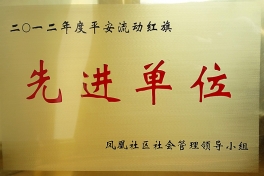 二〇一二年度平安流动红旗
先进单位
凤凰社区社会管理领导小组